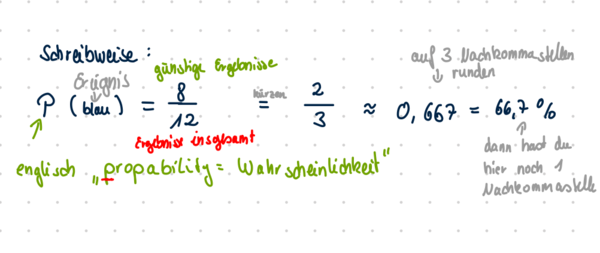 Schreibweise :
Ereignis
günstige Ergebnisse
auf 3 Nachkommastellen
runden
P (blau) = 8/12 = 2/3 ≈ 0,667 = 66,7 %
kürzen
Ergebnisse insgesamt
englisch „propability = Wahrscheinlichkeit"
dann hast du
hier noch 1
Nachkommastelle